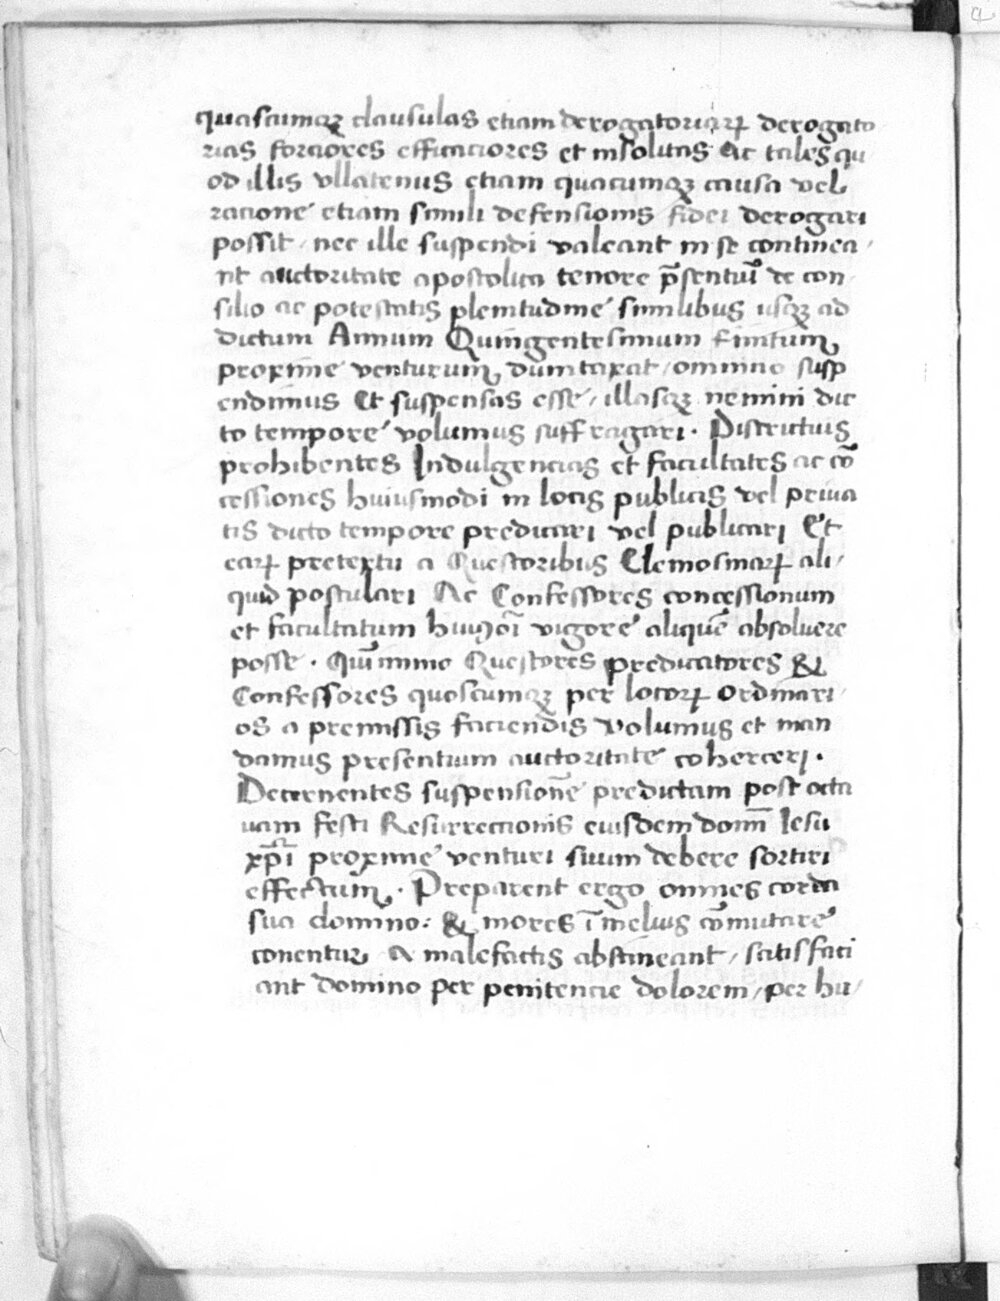 quascumqꝫ clausulas etiam derogatoriaꝝ derogato
rias forciores efficaciores et insolitas Ac tales qu
od illis vllatenus etiam quacumqꝫ causa vel
racione etiam simili defensionis fidei derogari
possit / nec ille suspendi valeant in se continea /
nt auctoritate apostolica tenore p̃sentiũ de con /
silio ac potestatis plenitudine similibus usqꝫ ad
dictum Annum Quingentesimum finitum
proxime venturum dumtaxat / omnino susp
endimus Et suspensas esse / illasqꝫ nemini dic
to tempore volumus suffragari . Districtius
prohibentes Indulgencias et facultates ac cõ
cessiones huiusmodi in locis publicis vel priua
tis dicto tempore predicari vel publicari Et
eaꝝ pretextu a Questoribus Elemosinaꝝ ali /
quid postulari Ac Confessores concessionum
et facultatum huiꝰmõi vigore aliquẽ absoluere
posse . Quĩimmo Questores predicatores &
Confessores quoscumqꝫ per locoꝝ ordinari /
os a premissis faciendis volumus et man
damus presentium auctoritate coherceri .
Decernentes suspensionẽ predictam post octa
uam festi Resurrectionis eiusdem domĩ Iesu
xp̃i proxime venturi suum debere sortiri
effectum . Preparent ergo omnes corda
sua domino : & mores ĩ melius cõmutare
conentur a malefactis abstineant / satisfaci
ant domino per penitencie dolorem / per hu /